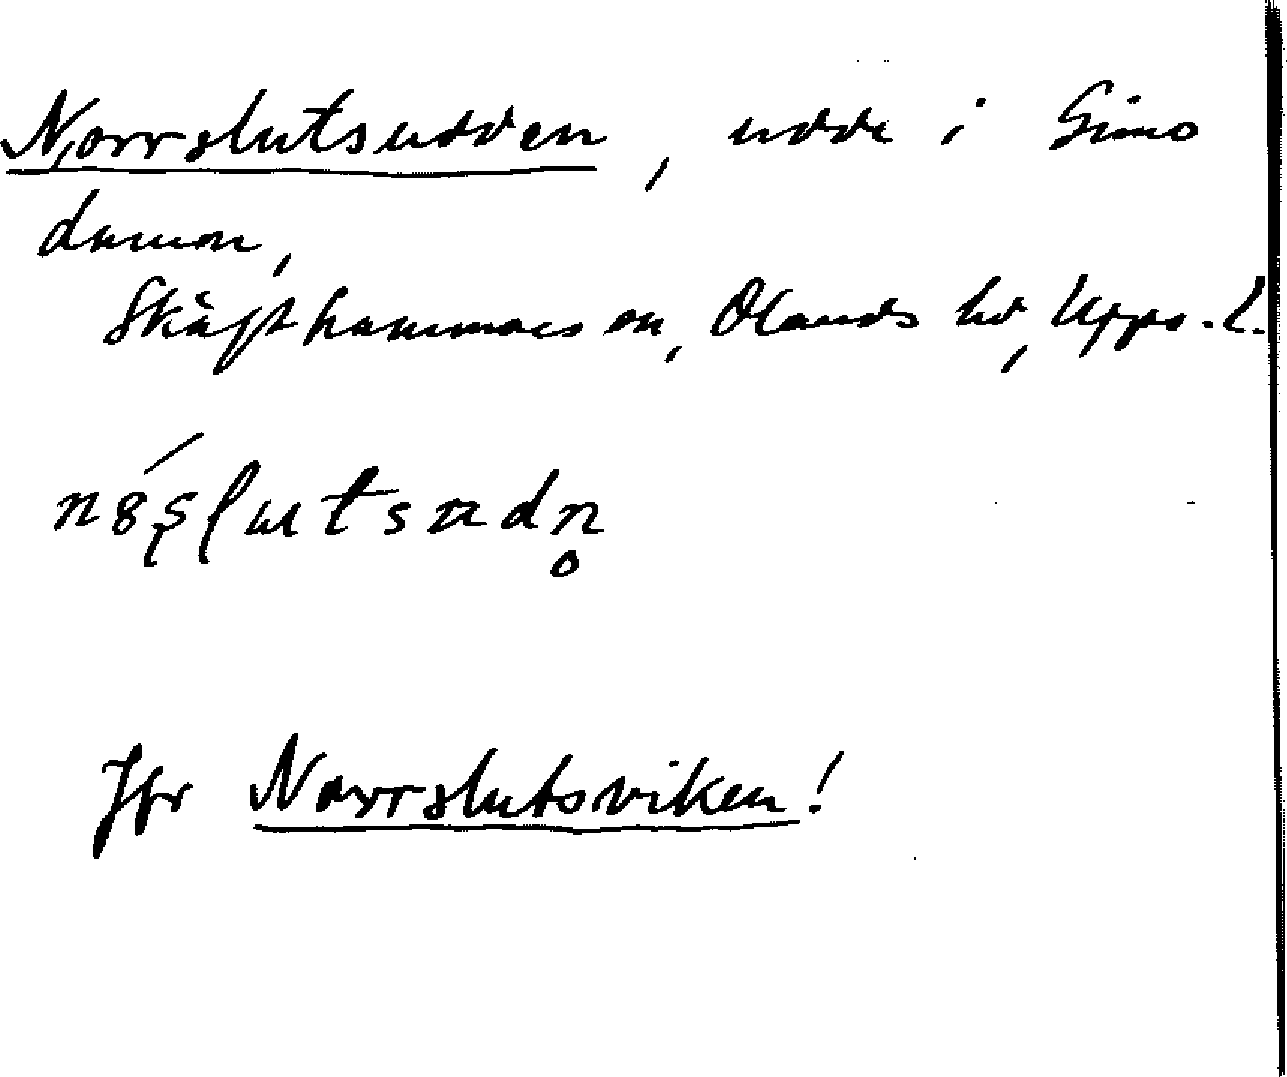 Norrslutsudden, udde i Gimo
dammen,
Skäfthammars sn, Olands hd, Upps. l.
Jfr Norrslutsviken!